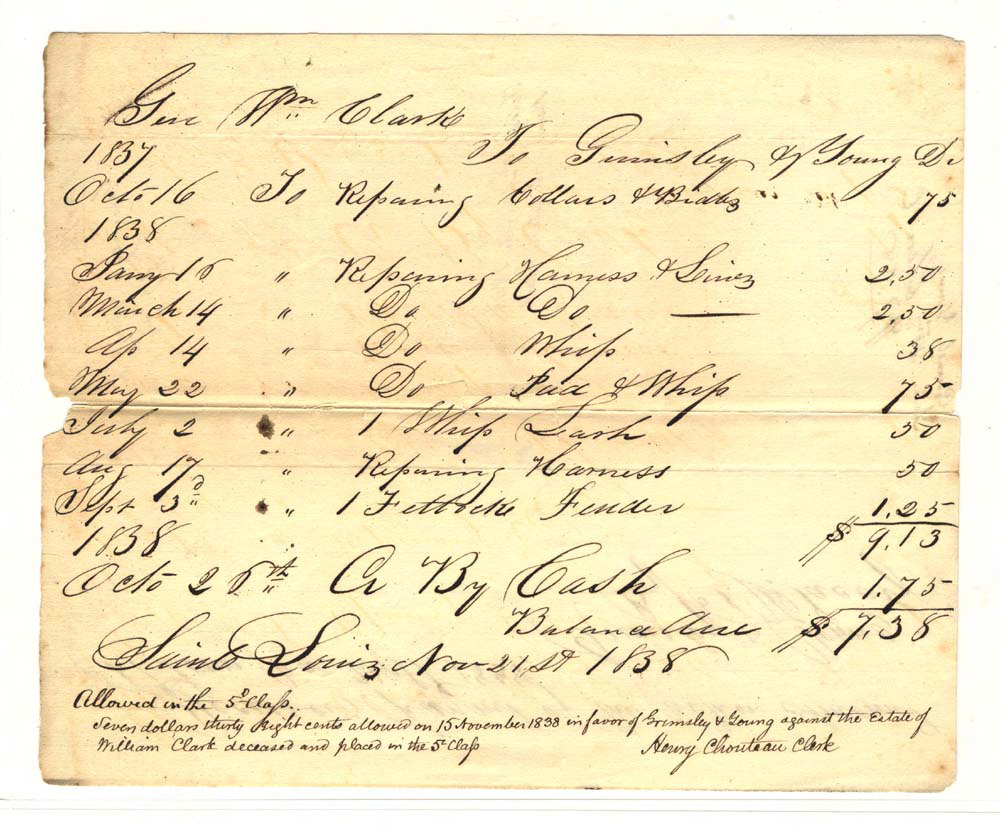 Gen Wm Clark
1837 To Grimsley & Young Dr
Octo 16 To Repairing Collars & Bridles 75
1838
Jany 16 " Repairing Harness & Lines 2,50
March 14 " Do Do — 2,50
Ap 14 " Do Whip 38
May 22 " Do Pad & Whip 75
July 2 " 1 Whip Lash 50
Aug 17 " Repairing Harness 50
Sept 3d " 1 Fetlock Fender 1.25
1838 $ 9,13
Octo 26th Cr By Cash 1.75
Balance due $ 7,38
Saint Louis Nov 21st 1838
Allowed in the 5th Class.
Seven dollars thirty Eight cents allowed on 15 November 1838 in favor of Grimsley & Young against the Estate of
William Clark deceased and placed in the 5th Class Henry Chouteau Clerk